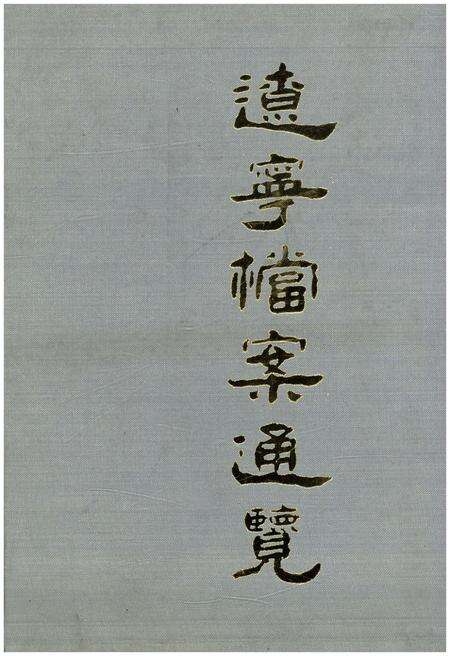 遼寧檔案通覽